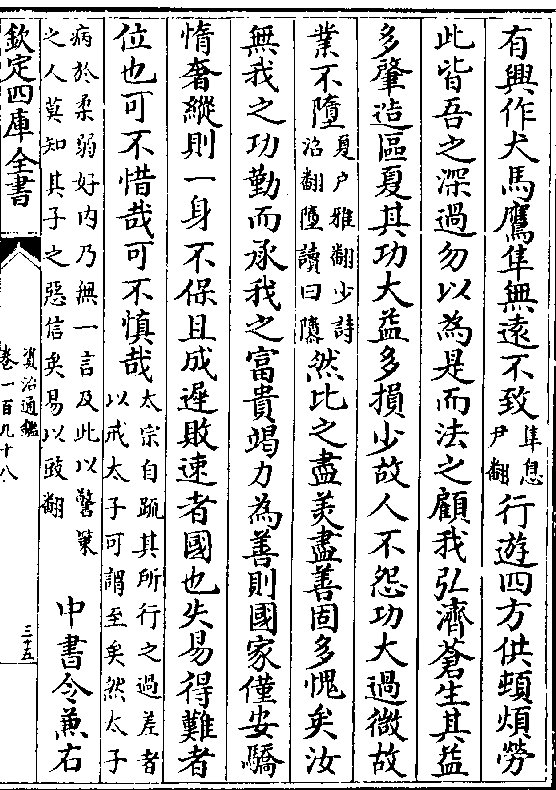 有興作犬馬鷹隼無遠不致隼息尹翻行遊四方供頓煩勞
此皆吾之深過勿以為是而法之顧我弘濟蒼生其益
多肇造區夏其功大益多損少故人不怨功大過微故
業不墮夏户雅翻少詩沼翻墮讀曰隳然比之盡美盡善固多愧矣汝
無我之功勤而承我之富貴竭力為善則國家僅安驕
惰奢縱則一身不保且成遲敗速者國也失易得難者
位也可不惜哉可不慎哉太宗自疏其所行之過差者以戒太子可謂至矣然太子
病於柔弱好内乃無一言及此以警策之人莫知其子之惡信矣易以豉翻中書令兼右
欽定四庫全書
資治通鑑
卷一百九十八
三十五